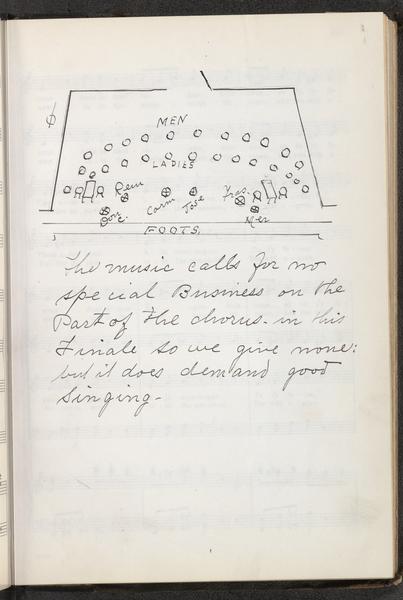 MEN
LADIES
Rem
Dan C.
Carm
Jose
Fras.
Mer
FOOTS.
The music calls for no
special Business on the
Part of the chorus - in this
Finale so we give none:
but it does demand good
Singing -